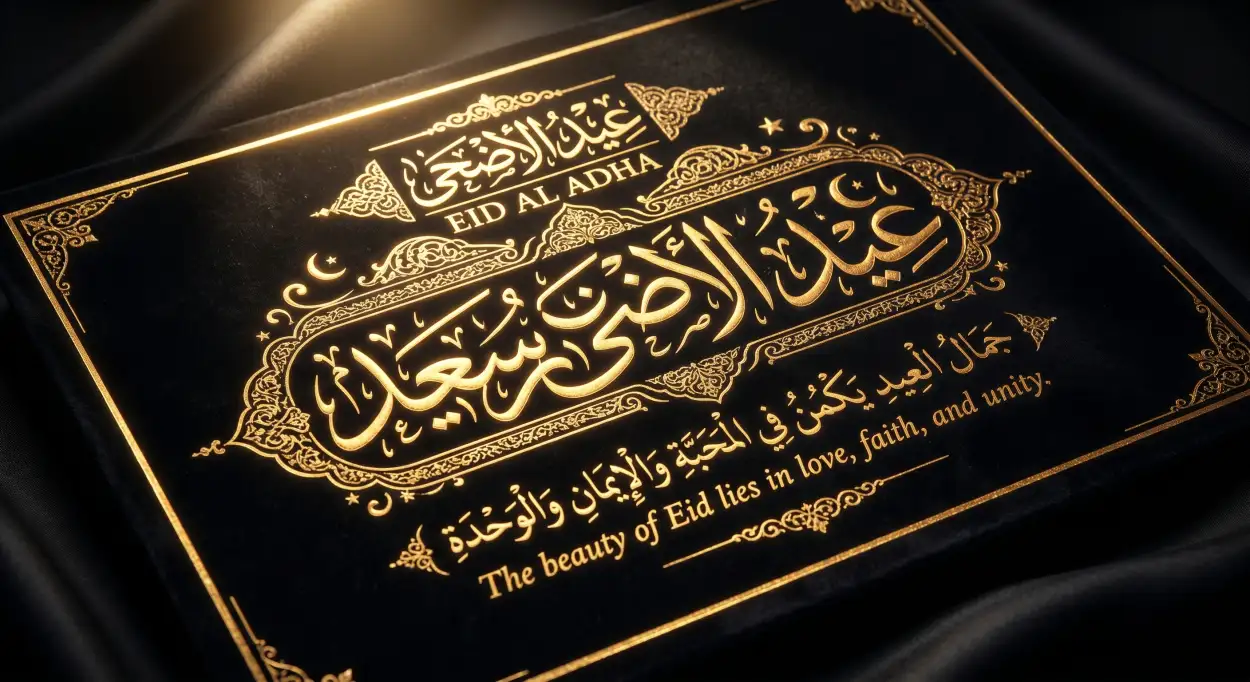 عِيْدُ الأَضْحَى
EID AL ADHA
عِيْدُ الأَضْحَى سُعَيِد
جَمَالُ الْعِيدِ يَكْمُنُ فِي الْمَحَبَّةِ وَالْإِيمَانِ وَالْوَحْدَةِ
The beauty of Eid lies in love, faith, and unity.